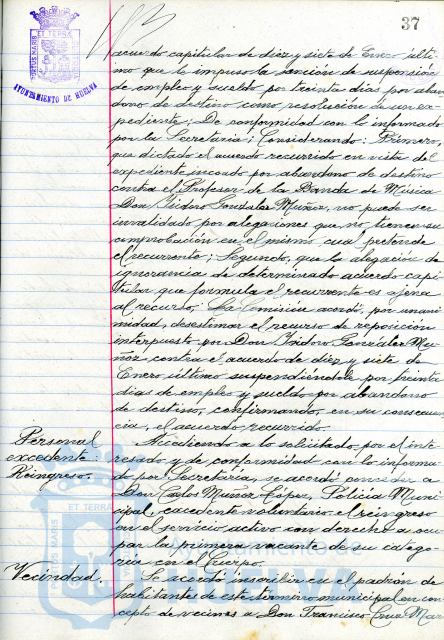 37
PORTUS MARIS ET TERRAE
AYUNTAMIENTO DE HUELVA
acuerdo capitular de diez y siete de Enero últi-
mo que le impuso la sanción de suspensión
de empleo y sueldo por treinta días por aban-
dono de destino como resolución de un ex-
pediente; De conformidad con lo informado
por la Secretaría; Considerando: Primero,
que dictado el acuerdo recurrido en vista del
expediente incoado por abandono de destino
contra el Profesor de la Banda de Música
Don Isidoro González Muñoz, no puede ser
invalidado por alegaciones que no tienen su
comprobación en el mismo cual pretende
el recurrente; Segundo, que la alegación de
ignorancia de determinado acuerdo capi-
tular que formula el recurrente es ajena
al recurso; La Comisión acordó, por unani-
midad, desestimar el recurso de reposición
interpuesto por Don Isidoro González Mu-
ñoz contra el acuerdo de diez y siete de
Enero último suspendiéndole por treinta
días de empleo y sueldo por abandono
de destino, confirmando, en su consecuen-
cia, el acuerdo recurrido.
Personal
excedente:
Reingreso.
Accediendo a lo solicitado por el inte-
resado y de conformidad con lo informa-
do por Secretaría, se acordó conceder a
Don Carlos Muñoz López, Policía Muni-
cipal, excedente voluntario el reingreso
en el servicio activo con derecho a ocu-
par la primera vacante de su catego-
ría en el Cuerpo.
Vecindad.
Se acordó inscribir en el padrón de
habitantes de este término municipal en con-
cepto de vecinos a Don Francisco Cruz Mar-